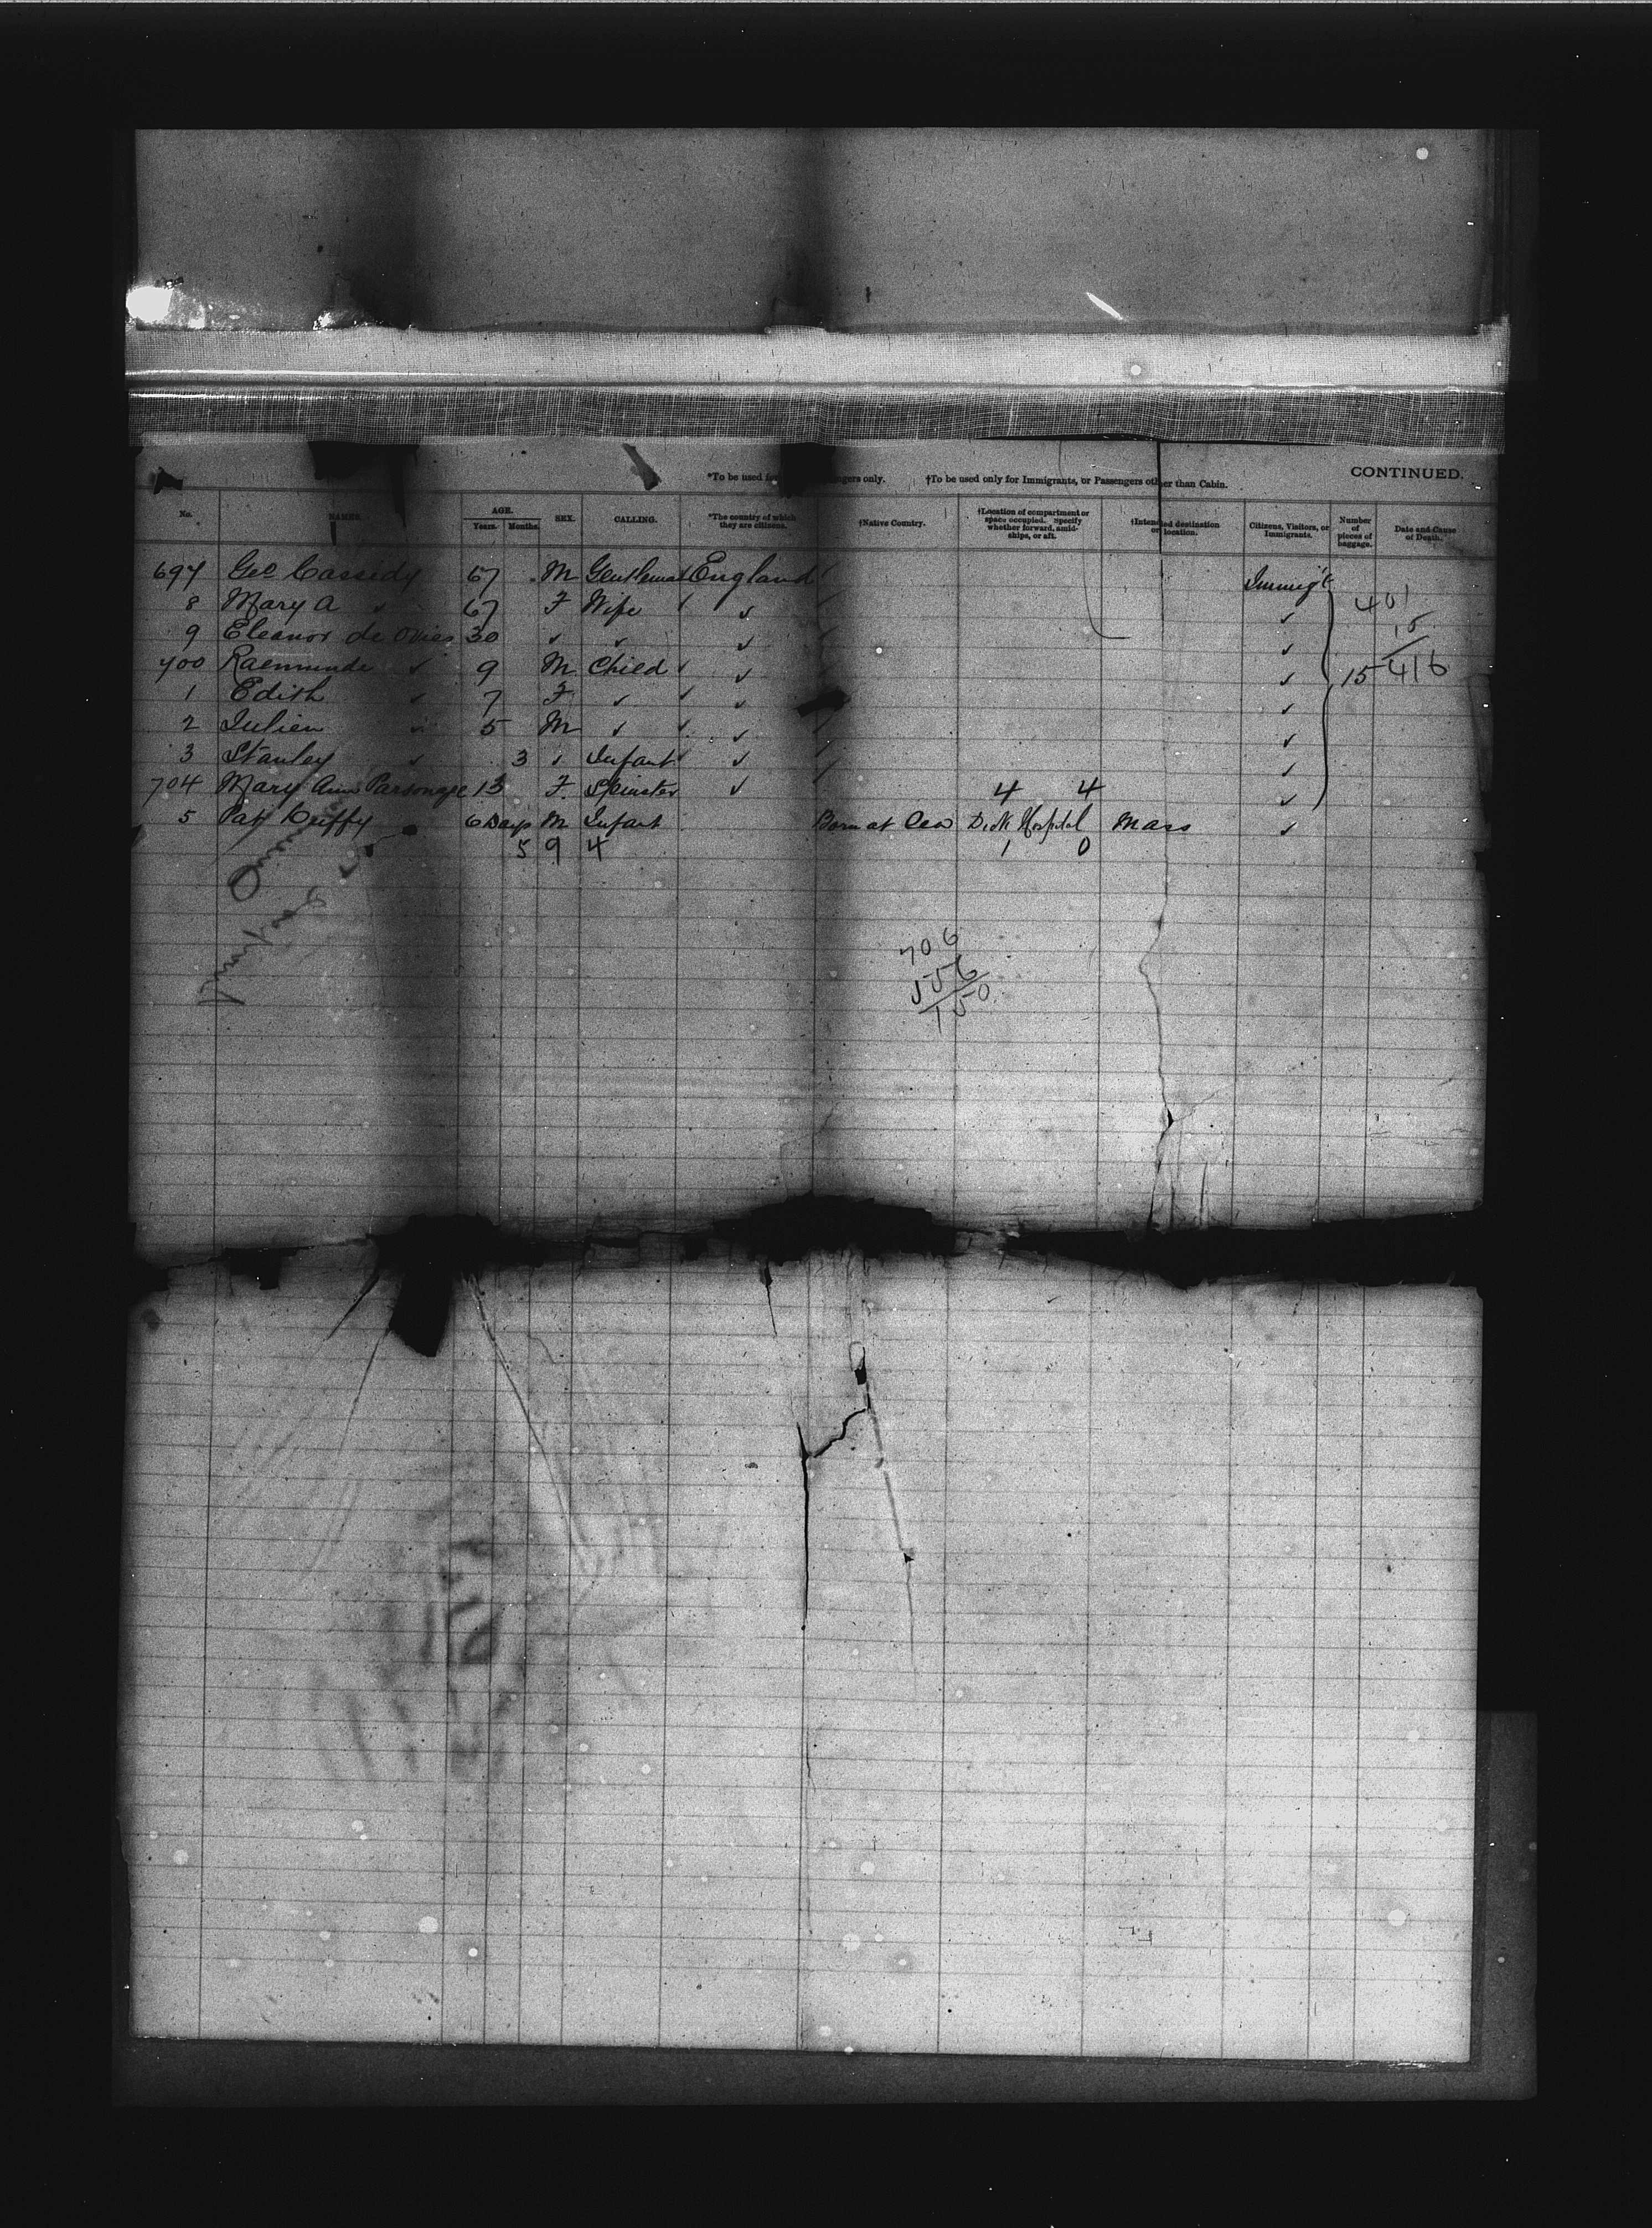 CONTINUED.
*To be used for ngers only. †To be used only for Immigrants, or Passengers other than Cabin.
No. NAMES. AGE. Years. Months. SEX. CALLING. *The country of which they are citizens. †Native Country. †Location of compartment or space occupied. Specify whether forward, amidships, or aft. †Intended destination or location. Citizens, Visitors, or Immigrants. Number of pieces of baggage. Date and Cause of Death.
697 Geo Cassidy 67 M Gentleman England Immigt
8 Mary A ✓ 67 F Wife ✓ ✓ 401
9 Eleanor de Ovies 30 ✓ ✓ ✓ ✓ 15
700 Raemunde ✓ 9 M Child ✓ ✓ 15 416
1 Edith ✓ 7 F ✓ ✓ ✓
2 Julien ✓ 5 M ✓ ✓ ✓
3 Stanley ✓ 3 ✓ Infant ✓ ✓
704 Mary Ann Parsonage 13 F. Spinster ✓ 4 4 ✓
5 Pat Duffy 6 Days M Infant Born at Sea Deck Hospital Mass ✓
5 9 4 1 0
706
556
150